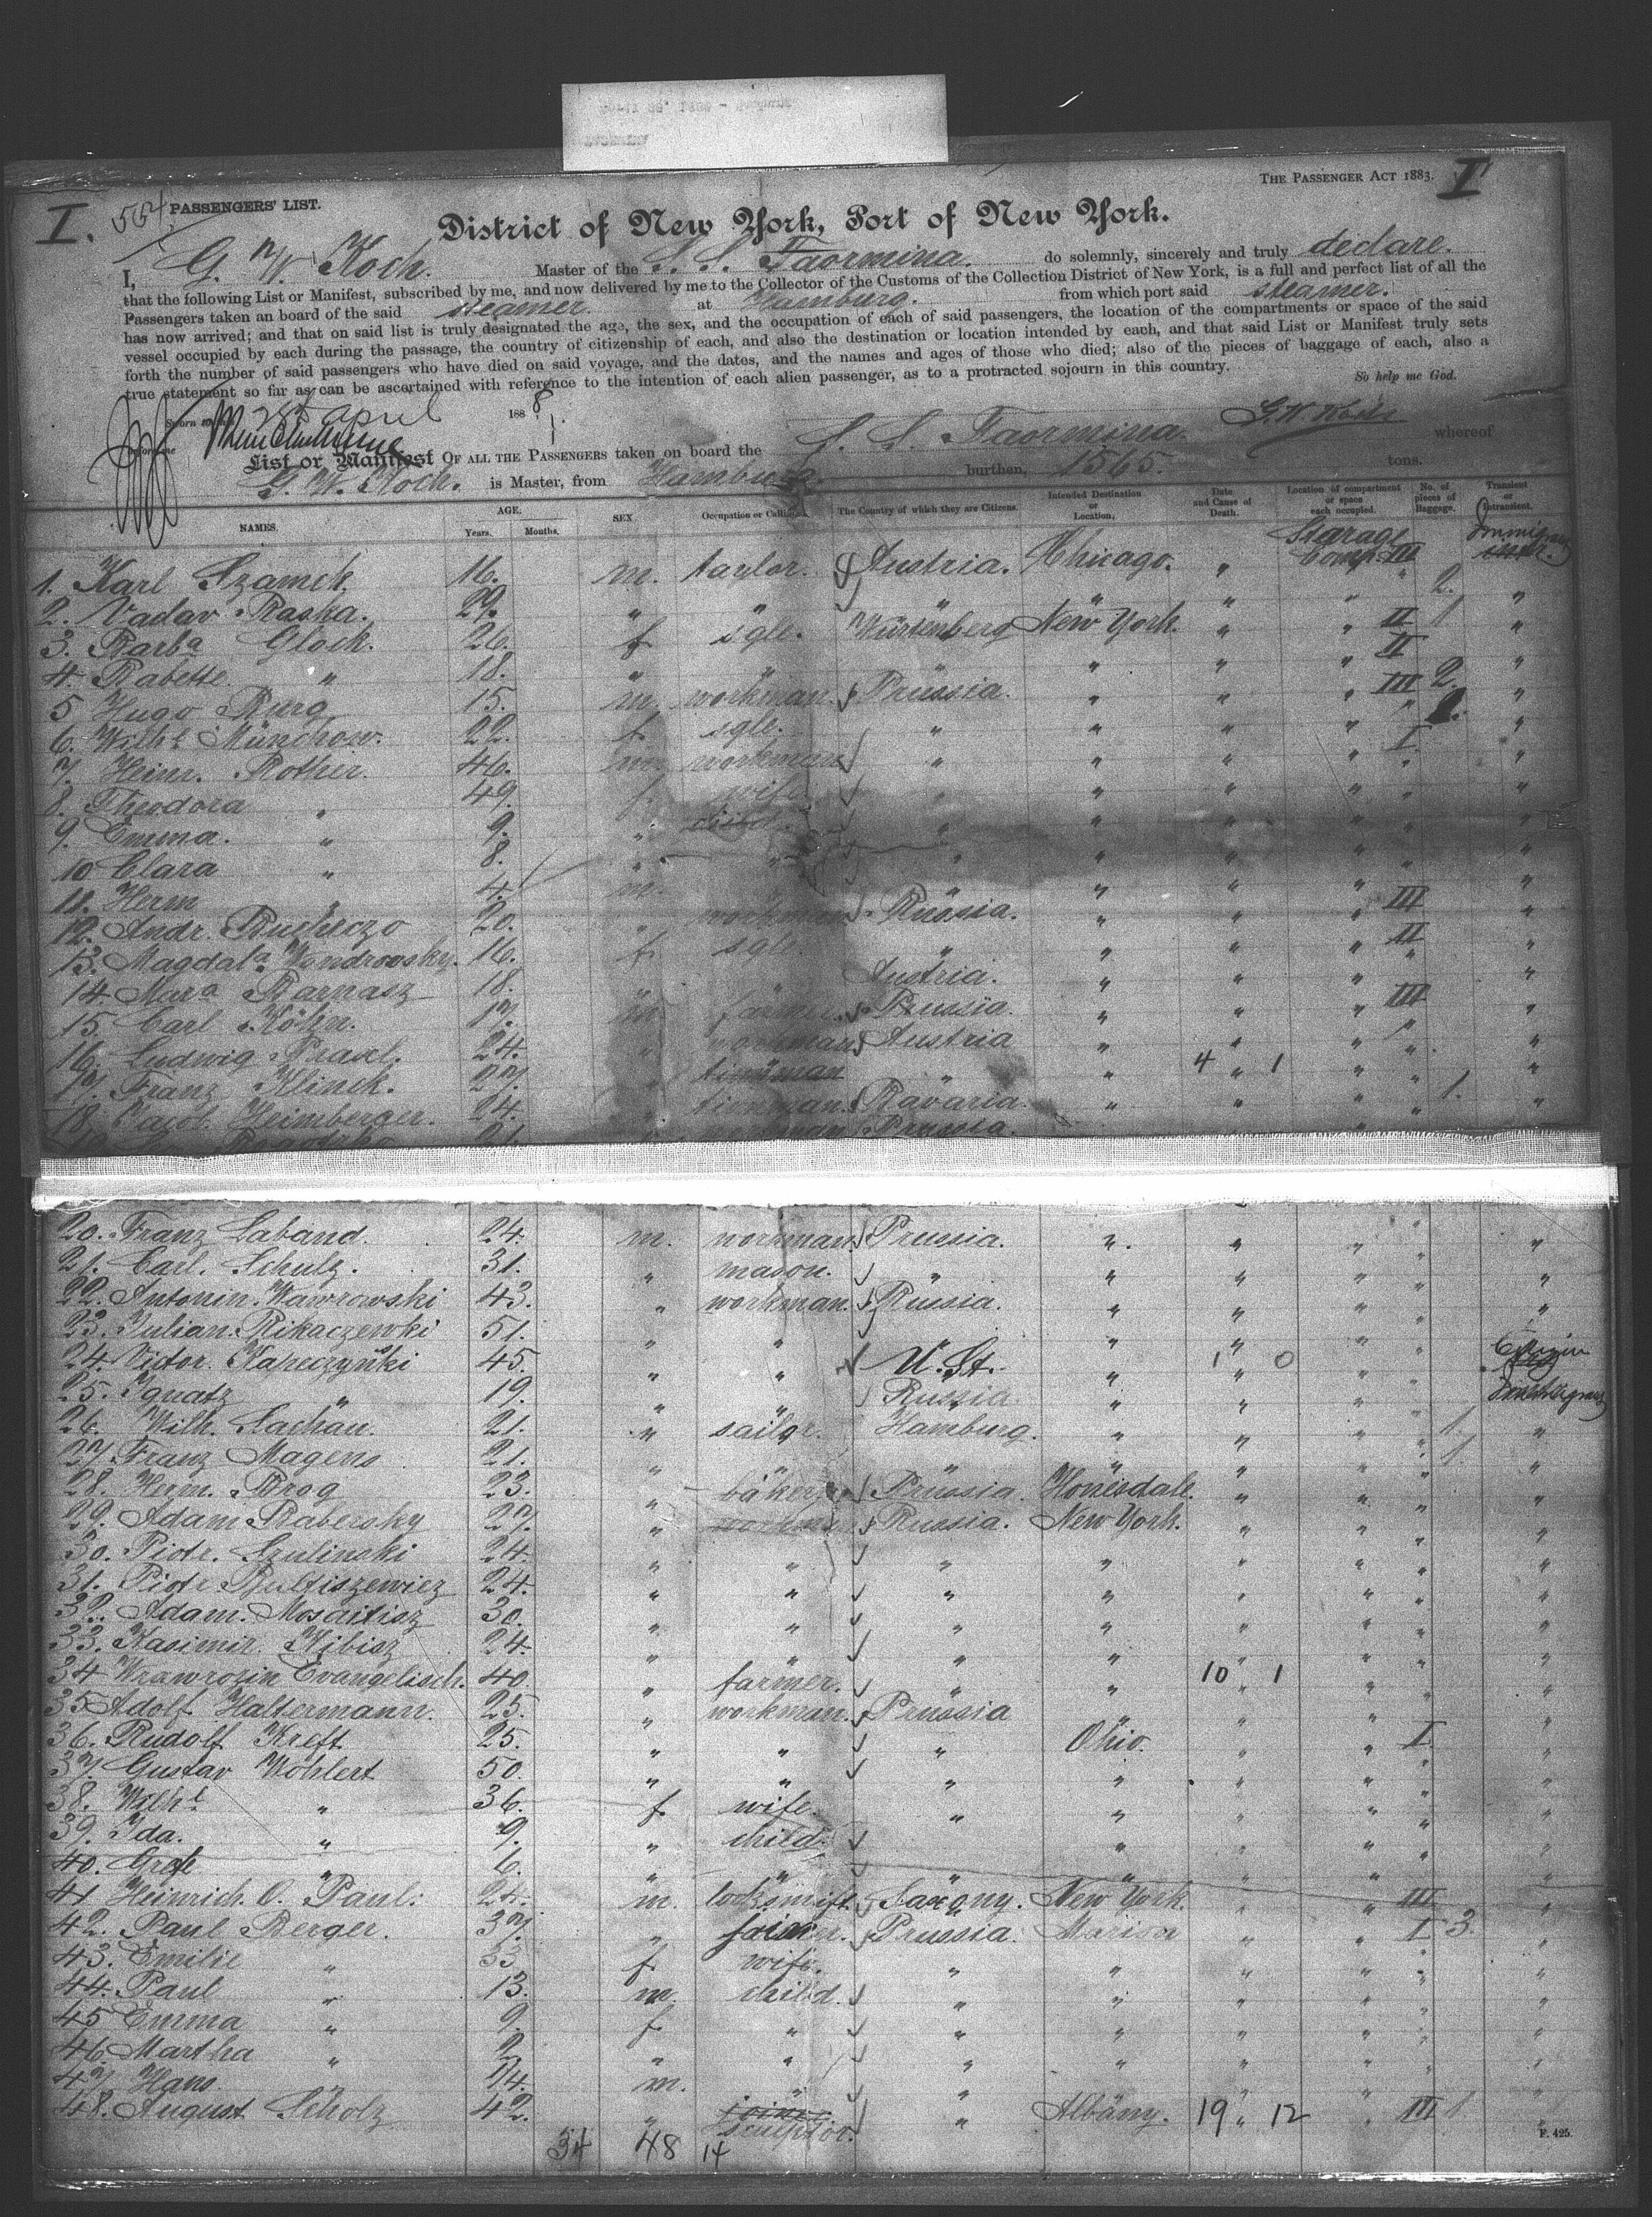 I. 554. PASSENGERS' LIST. THE PASSENGER ACT 1883. I
District of New York, Port of New York.
I, G. W. Koch. Master of the S. S. Taormina. do solemnly, sincerely and truly declare.
that the following List or Manifest, subscribed by me, and now delivered by me to the Collector of the Customs of the Collection District of New York, is a full and perfect list of all the
Passengers taken an board of the said steamer. at Hamburg. from which port said steamer.
has now arrived; and that on said list is truly designated the age, the sex, and the occupation of each of said passengers, the location of the compartments or space of the said
vessel occupied by each during the passage, the country of citizenship of each, and also the destination or location intended by each, and that said List or Manifest truly sets
forth the number of said passengers who have died on said voyage, and the dates, and the names and ages of those who died; also of the pieces of baggage of each, also a
true statement so far as can be ascertained with reference to the intention of each alien passenger, as to a protracted sojourn in this country. So help me God.
Sworn to April 1888 G. W. Koch
List or Manifest OF ALL THE PASSENGERS taken on board the S. S. Taormina. whereof
G. W. Koch. is Master, from Hamburg. burthen, 1565. tons.
NAMES. AGE. Years. Months. SEX Occupation or Calling The Country of which they are Citizens. Intended Destination or Location, Date and Cause of Death. Location of compartment or space each occupied. No. of pieces of Baggage. Transient or Intransient.
1. Karl Szamek. 16. m. taylor. Austria. Chicago. " Starage Comp. III
2. Vaclav Raska. 29. " " " " " " " 2. "
3. Barba Gloch. 26. f sgle. Würtenberg New York. " " II 1 "
4. Babette " 18. " " " " " " II "
5 Hugo Burg 15. m. workman. Prussia. " " " III 2. "
6. Wilhe Münchow. 22. f. sgle. " " " " "
7. Heinr. Rother. 46. m workman " " " " I "
8. Theodora " 49. f. wife " " " " " "
9. Emma. " 9. " child. " " " " " "
10 Clara " 8. " " " " " " " "
11. Herm " 4. m. " " " " " " "
12. Andr. Rucheczo 20. " workman Russia. " " " III "
13. Magdala Wondrowsky. 16. f sgle " " " " II "
14. Mara Barnasz 18. " Austria. " " " " "
15. Carl Kölzn. 17. m farmer. Prussia. " " " III "
16. Ludwig Prasel. 24. " workman Austria " " " " "
17. Franz Klinek. 27. " " " 4 " 1 " " "
18. Jacob. Heimberger. 24. " Bavaria. " " " " 1. "
19. 21. Prussia.
20. Franz Laband. 24. m. workman. Prussia. " " " " "
21. Carl. Schulz. 31. " mason. " " " " " "
22. Antonin. Wawrowski 43. " workman. Russia. " " " " "
23. Julian. Rikaczewki 51. " " " " " " "
24. Victor. Kapeczyński 45. " " U. St. " 1 " 0 " "
25. Ignatz " 19. " " Russia. " " " "
26. Wilh. Lachau. 21. " sailor. Hamburg. " " " " 1. "
27. Franz Magens 21. " " " " " " " 1. "
28. Herm. Brog 23. " baker Prussia. Honesdale. " " " "
29. Adam Rabersky 27. " workman Russia. New York. " " " "
30. Piotr. Szulinski 24. " " " " " " " "
31. Piotr Bultiszewicz 24. " " " " " " " "
32. Adam. Mosaitisz 30. " " " " " " " "
33. Kasimir. Kibisz 24. " " " " " " " "
34 Wrawrozin Evangelisch. 40. " farmer. " " 10 " 1 " " "
35 Adolf Haltermann. 25. " workman. Prussia " " " " "
36. Rudolf Kreft 25. " " " Ohio. " " I "
37. Gustav Wöhlert 50. " " " " " " " "
38. Wilhe " 36. f. wife. " " " " " "
39. Ida. " 9. " child. " " " " "
40. Grete " 6. " " " " " " " "
41 Heinrich. O. Paul. 24. m. locksmith. Saxony. New York. " " III "
42. Paul Berger. 37. " Prussia. Marion " " I 3. "
43. Emilie " 33 f wife. " " " " " "
44. Paul " 13. m. child. " " " " " "
45 Emma " 9. f. " " " " " " "
46. Martha " 2 " " " " " " " "
47 Hans. " m. " " " " " " "
48. August Scholz 42. " joiner sculptor. " Albany. 19 " 12 " III 1
34 48 14
F. 425.